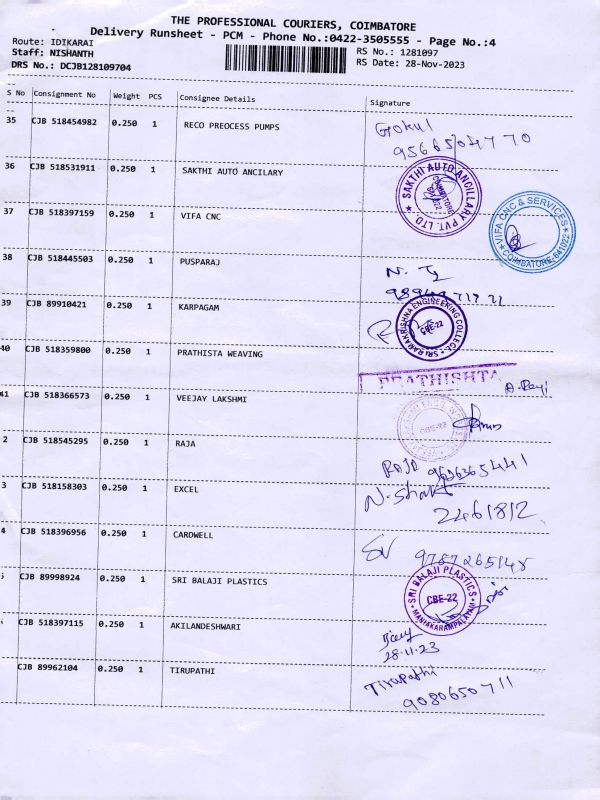 THE PROFESSIONAL COURIERS, COIMBATORE
Delivery Runsheet - PCM - Phone No.:0422-3505555 - Page No.:4
Route: IDIKARAI
RS No.: 1281097
Staff: NISHANTH
RS Date: 28-Nov-2023
DRS No.: DCJB128109704
S No Consignment No Weight PCS Consignee Details Signature
35 CJB 518454982 0.250 1 RECO PREOCESS PUMPS Gokul
9566504770
36 CJB 518531911 0.250 1 SAKTHI AUTO ANCILARY
SAKTHI AUTO ANCILLARY PVT. LTD
37 CJB 518397159 0.250 1 VIFA CNC
VIFA CNC & SERVICES
COIMBATORE-641022
38 CJB 518445503 0.250 1 PUSPARAJ
39 CJB 89910421 0.250 1 KARPAGAM
SRI RAMAKRISHNA ENGINEERING COLLEGE
CBE-22
40 CJB 518359800 0.250 1 PRATHISTA WEAVING
PRATHISHTA
41 CJB 518366573 0.250 1 VEEJAY LAKSHMI
CBE-22
2 CJB 518545295 0.250 1 RAJA
RAJA
3 CJB 518158303 0.250 1 EXCEL
2461812
4 CJB 518396956 0.250 1 CARDWELL
CJB 89998924 0.250 1 SRI BALAJI PLASTICS
SRI BALAJI PLASTICS
CBE-22
MANIAKARAMPALAYAM
CJB 518397115 0.250 1 AKILANDESHWARI
28.11.23
CJB 89962104 0.250 1 TIRUPATHI Tirupathi
9080650711